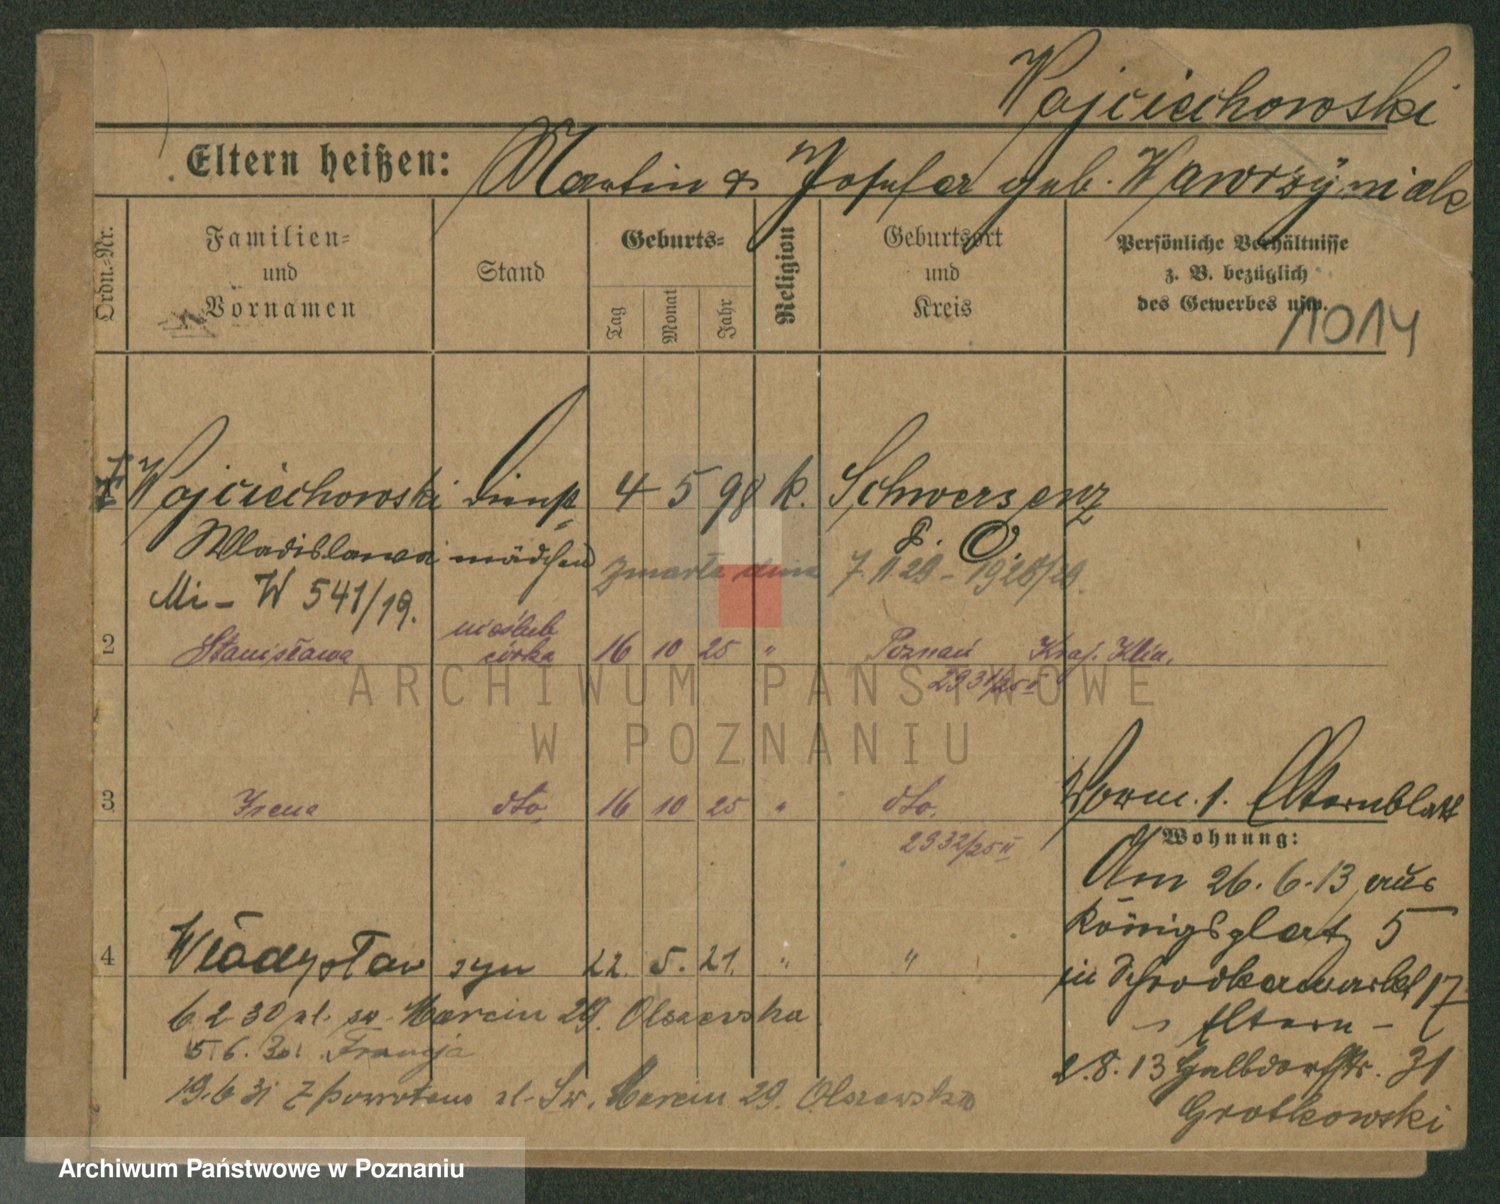 Wojciechowski
Eltern heißen: Martin & Josefa geb. Wawrzyniak
Ordn.-Nr.
Familien-
und
Vornamen
Stand
Geburts-
Tag
Monat
Jahr
Religion
Geburtsort
und
Kreis
Persönliche Verhältnisse
z. B. bezüglich
des Gewerbes usw.
1014
1 Wojciechowski Dienst 4 5 98 k. Schwersenz
Wladislawa mädchen P. O.
zmarła dnia 7.11.29 - 1928/29.
Mi - W 541/19.
2 Stanisława nieślub córka 16 10 25 " Poznań
2931/25 II
3 Irena dto. 16 10 25 " dto.
2932/25 II
Vorm. 1. Elternblatt
Wohnung:
Am 26. 6. 13 aus
Königsplatz 5
in Schrodkamarkt 17
- Eltern -
2. 8. 13 31
Grotkowski
4 Władysław syn 22. 5. 21. " "
6 2 30 ul. św. Marcin 29. Olszewska
5 6. 30. Francja
19.6 31 z powrotem ul. Św. Marcin 29. Olszewska
ARCHIWUM PAŃSTWOWE
W POZNANIU
Archiwum Państwowe w Poznaniu